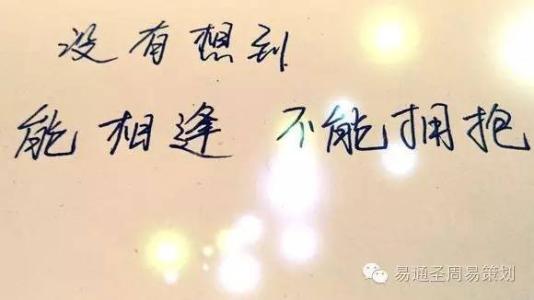 没有想到
能相逢 不能拥抱
易通圣周易策划